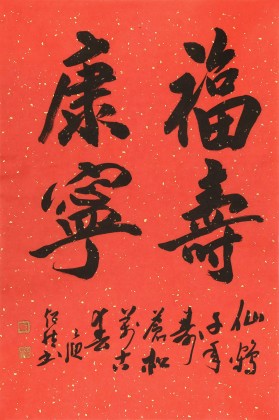 福壽
康寧
仙鶴
千年
壽
蒼松
萬古
春